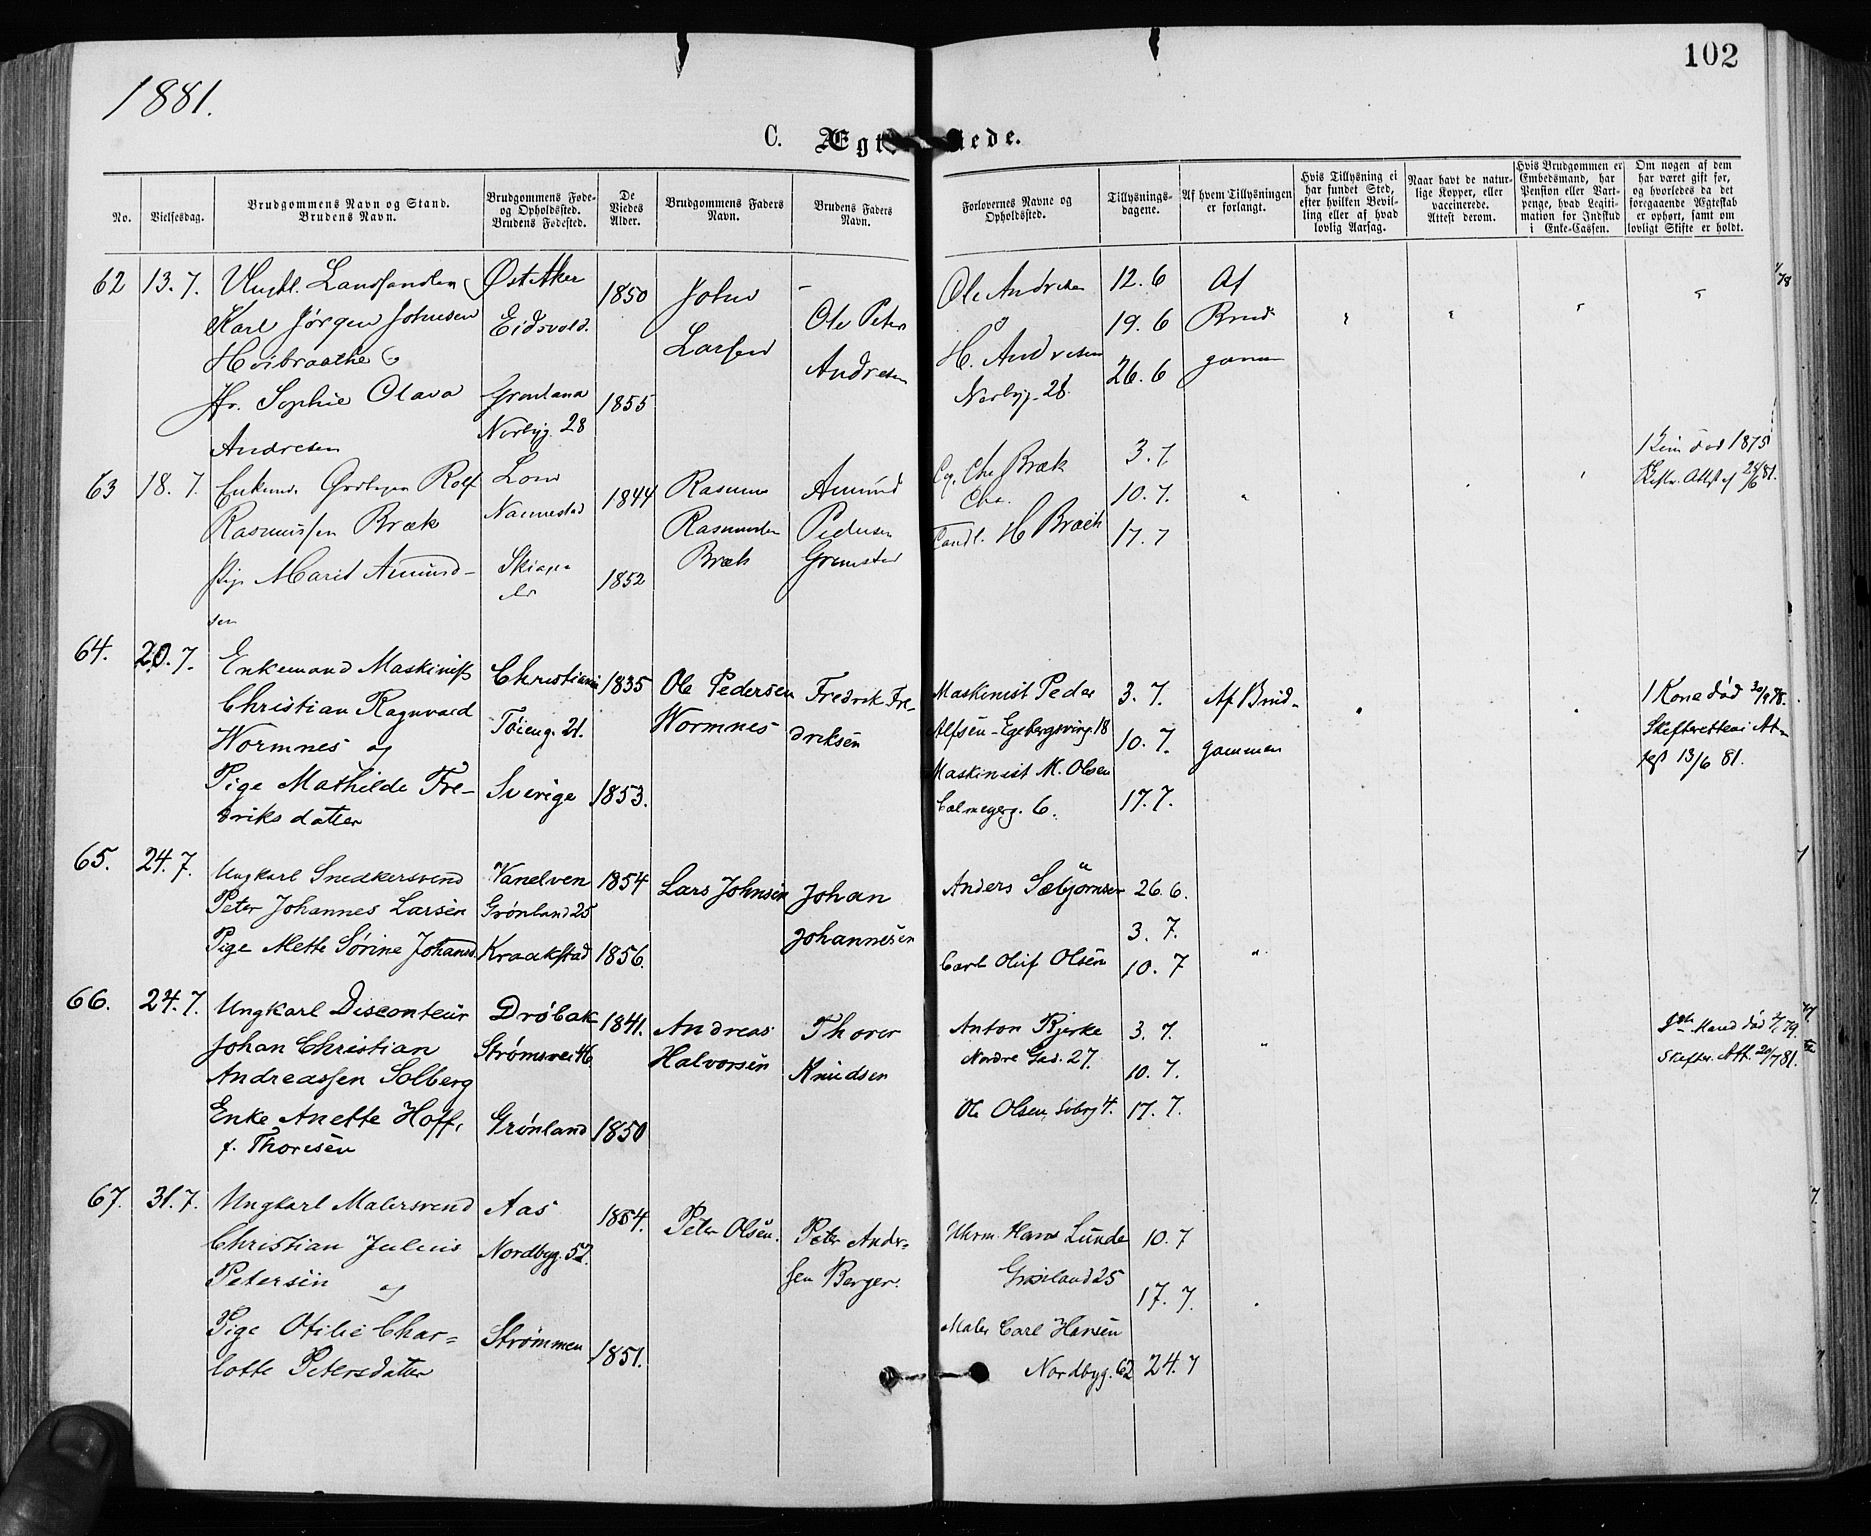 102
1881.
C. Ægt
ede.
No.
Vielsesdag.
Brudgommens Navn og Stand.
Brudens Navn.
Brudgommens Føde-
og Opholdssted.
Brudens Fødested.
De
Viedes
Alder.
Brudgommens Faders
Navn.
Brudens Faders
Navn.
Forlovernes Navne og
Opholdssted.
Tillysnings-
dagene.
Af hvem Tillysningen
er forlangt.
Hvis Tillysning ei
har fundet Sted,
efter hvilken Bevil-
ling eller af hvad
lovlig Aarsag.
Naar havt de natur-
lige Kopper, eller
vaccinerede.
Attest derom.
Hvis Brudgommen er
Embedsmand, har
Pension eller Vart-
penge, hvad Legiti-
mation for Indskud
i Enke-Cassen.
Om nogen af dem
har været gift før,
og hvorledes da det
foregaaende Ægteskab
er ophørt, samt om
lovligt Skifte er holdt.
62 13. 7.
Karl Jørgen Johnsen
Høibraathe
Sophie Olava
Andresen
Øst Aker
Eidsvold.
Grønland
Norbyg. 28
1850
1855
John
Larsen
Ole Peter
Andresen
Ole Andresen
H. Andresen
Norbyg. 28.
12. 6
19. 6
26. 6
Af
Brud
gommen
63 18. 7.
Rolf
Rasmussen Bræk
Pige Marit Amund-
sen
Lom
Nannestad
1844
1852
Rasmus
Rasmussen
Bræk
Amund
Pedersen
Bræk
H Bræk
3. 7.
10. 7.
17. 7
død 1875
64. 20. 7.
Enkemand Maskinist
Christian Ragnvald
Wormnes og
Pige Mathilde Fre-
driksdatter
Christiania
Tøieng. 21.
Sverige
1835
1853.
Ole Pedersen
Wormnes
Fredrik Fre-
driksen
Maskinist Peder
Alfsen - Egebergsving. 18
Maskinist M. Olsen
Calmeyerg. 6.
3. 7.
10. 7.
17. 7.
Af Brud-
gommen
1 Kone død 30/9 78.
Skifterettens At-
test 13/6 81.
65. 24. 7.
Ungkarl Snedkersvend
Peter Johannes Larsen
Pige Mette Sørine Johansd.
Vanelven
Grønland 25
Kraakstad
1854
1856.
Lars Johnsen
Johan
Johannesen
Anders Sæbjørnsen
Carl Oluf Olsen
26. 6.
3. 7.
10. 7
66. 24. 7.
Ungkarl Disconteur
Johan Christian
Andreassen Solberg
Enke Anette Hoff,
f. Thoresen
Drøbak
Strømsvei 46
Grønland
1841.
1850
Andreas
Halvorsen
Thorer
Knudsen
Anton Bjerke
Nordre Gad. 27.
Ole Olsen,
3. 7.
10. 7.
17. 7.
Mand død
Skifter. Att. 20/7 81.
67. 31. 7.
Ungkarl Malersvend
Christian Julius
Petersen og
Pige Otilie Char-
lotte Petersdatter
Aas
Nordbyg. 52.
Strømmen
1854.
1851.
Peter Olsen.
Peter Ander-
sen Berger.
Uhrm. Hans Lunde
Grønland 25
Maler Carl Hansen
Nordbyg. 62
10. 7
17. 7.
24. 7